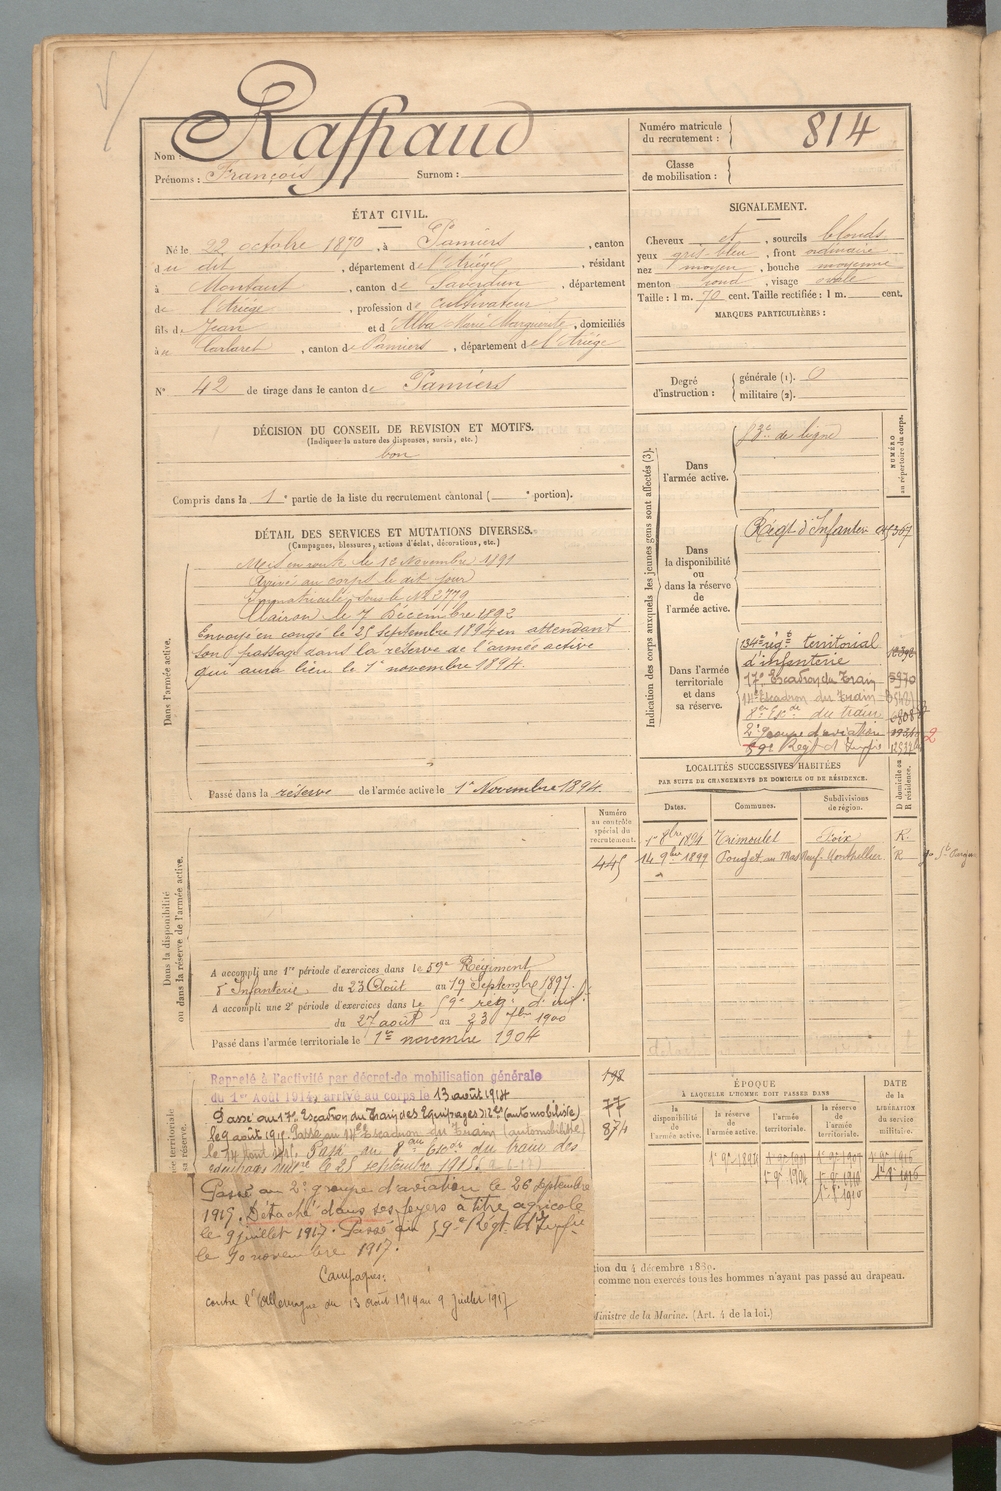 Nom : Raspaud
Prénoms : François Surnom :
Numéro matricule du recrutement : 814
Classe de mobilisation :
ÉTAT CIVIL.
Né le 22 octobre 1870, à Pamiers, canton
du dit, département de l'Ariège, résidant
à Montaut, canton de Saverdun, département
de l'Ariège, profession de cultivateur
fils de Jean et d'Alba Marie Marguerite, domiciliés
à Carlaret, canton de Pamiers, département de l'Ariège
N° 42 de tirage dans le canton de Pamiers
SIGNALEMENT.
Cheveux et, sourcils blonds
yeux gris bleu, front ordinaire
nez moyen, bouche moyenne
menton rond, visage ovale
Taille : 1 m. 70 cent. Taille rectifiée : 1 m. cent.
MARQUES PARTICULIÈRES :
Degré d'instruction : générale (1). 0
militaire (2).
DÉCISION DU CONSEIL DE REVISION ET MOTIFS.
(Indiquer la nature des dispenses, sursis, etc.)
bon
Compris dans la 1e partie de la liste du recrutement cantonal ( e portion).
DÉTAIL DES SERVICES ET MUTATIONS DIVERSES.
(Campagnes, blessures, actions d'éclat, décorations, etc.)
Dans l'armée active.
Mis en route le 12 Novembre 1891
Arrivé au corps le dit jour
Immatriculé sous le N° 2779
Clairon le 7 Décembre 1892
Envoyé en congé le 25 septembre 1894 en attendant
son passage dans la réserve de l'armée active
qui aura lieu le 1er novembre 1894.
Passé dans la réserve de l'armée active le 1er Novembre 1894.
Indication des corps auxquels les jeunes gens sont affectés (3).
NUMÉRO au répertoire du corps.
Dans l'armée active.
de ligne
Dans la disponibilité ou dans la réserve de l'armée active.
Régt d'Infanterie
Dans l'armée territoriale et dans sa réserve.
134e régt territorial
d'infanterie
17e Escadron du Train
14e Escadron du Train
8e Eson du train
2e groupe d'aviation
59e Régt d'Infie
LOCALITÉS SUCCESSIVES HABITÉES
PAR SUITE DE CHANGEMENTS DE DOMICILE OU DE RÉSIDENCE.
D domicile ou R résidence.
Dates. Communes. Subdivisions de région.
1er 8bre 1894 Trémoulet Foix R.
14 9bre 1899 Pouget au Mas Neuf Montpellier R
Numéro au contrôle spécial du recrutement.
445
Dans la disponibilité ou dans la réserve de l'armée active.
A accompli une 1re période d'exercices dans le 59e Régiment
d'Infanterie du 23 Août au 19 Septembre 1897.
A accompli une 2e période d'exercices dans le 59e régt d'inf.
du 27 août au 23 7bre 1900
Passé dans l'armée territoriale le 1er novembre 1904
Rappelé à l'activité par décret de mobilisation générale
du 1er Août 1914, arrivé au corps le 13 août 1914
Passé au 17e Escadron du Train des Equipages Mres (automobiliste)
le 9 août 1915. Passé au 14e Escadron du Train (automobiliste)
le 14 Août 1915. Passé au 8e Eson du train des
équipages milre le 25 septembre 1915.
198
77
874
Passé au 2e groupe d'aviation le 26 septembre
1915. Détaché dans ses foyers à titre agricole
le 9 juillet 1917. Passé au 59e Régt d'Infie
le novembre 1917.
Campagnes:
contre l'Allemagne du 13 août 1914 au 9 Juillet 1917
ÉPOQUE
À LAQUELLE L'HOMME DOIT PASSER DANS
DATE de la LIBÉRATION du service militaire.
la disponibilité de l'armée active. la réserve de l'armée active. l'armée territoriale. la réserve de l'armée territoriale.
1er 9bre 1894
1er 9bre 1904
1er 9bre 1910
tion du 4 décembre 1889.
comme non exercés tous les hommes n'ayant pas passé au drapeau.
Ministre de la Marine. (Art. 4 de la loi.)